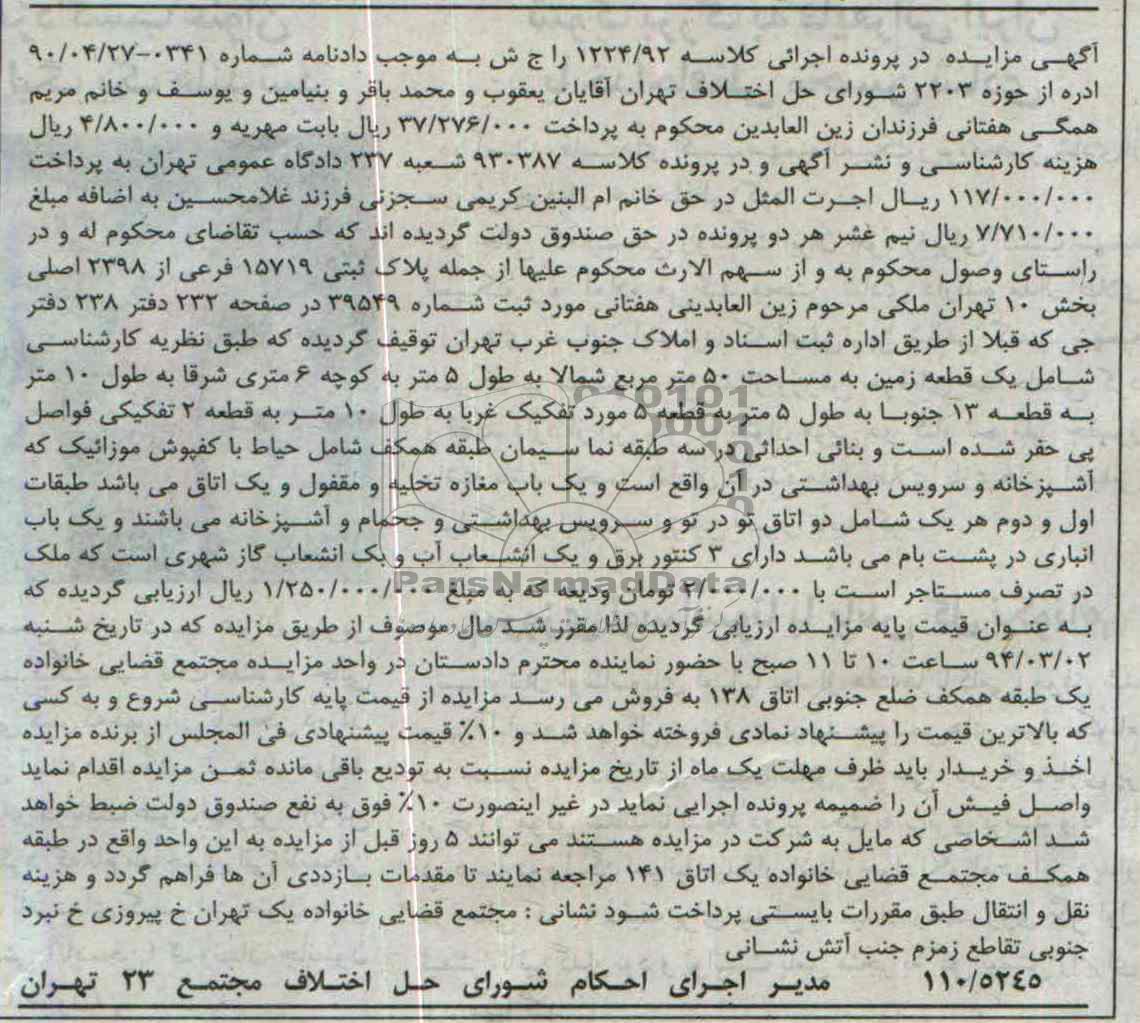 آگهـی مزایـده در پرونده اجرائی کلاسـه ۱۲۲۴/۹۲ را ج ش بـه موجب دادنامه شـماره ۰۳۴۱-۹۰/۰۴/۲۷
ادره از حوزه ۲۲۰۳ شـورای حل اختـلاف تهران آقایان یعقوب و محمد باقر و بنیامین و یوسـف و خانم مریم
همگـی هفتانی فرزندان زین العابدین محکوم به پرداخت ۳۷/۲۷۶/۰۰۰ ریال بابت مهریه و ۴/۸۰۰/۰۰۰ ریال
هزینه کارشناسـی و نشـر آگهی و در پرونده کلاسـه ۹۳۰۳۸۷ شـعبه ۲۳۷ دادگاه عمومی تهران به پرداخت
۱۱۷/۰۰۰/۰۰۰ ریـال اجـرت المثل در حق خانم ام البنین کریمی سـجزئی فرزند غلامحسـین به اضافه مبلغ
۷/۷۱۰/۰۰۰ ریال نیم غشر هر دو پرونده در حق صندوق دولت گردیده اند که حسب تقاضای محکوم له و در
راسـتای وصول محکوم به و از سـهم الارث محکوم علیها از جمله پلاک ثبتی ۱۵۷۱۹ فرعی از ۲۳۹۸ اصلی
بخش ۱۰ تهران ملکی مرحوم زین العابدینی هفتانی مورد ثبت شـماره ۳۹۵۴۹ در صفحه ۲۳۲ دفتر ۲۳۸ دفتر
جی که قبلا از طریق اداره ثبت اسـناد و املاک جنوب غرب تهران توقیف گردیده که طبق نظریه کارشناسـی
شـامل یک قطعه زمین به مسـاحت ۵۰ متر مربع شمالا به طول ۵ متر به کوچه ۶ متری شرقا به طول ۱۰ متر
بـه قطعـه ۱۳ جنوبـا به طول ۵ متر به قطعه ۵ مورد تفکیک غربا به طول ۱۰ متـر به قطعه ۲ تفکیکی فواصل
پی حفر شـده اسـت و بنائی احداثی در سه طبقه نما سـیمان طبقه همکف شامل حیاط با کفپوش موزائیک که
آشـپزخانه و سرویس بهداشـتی در آن واقع است و یک باب مغازه تخلیه و مقفول و یک اتاق می باشد طبقات
اول و دوم هر یک شـامل دو اتاق تو در تو و سـرویس بهداشـتی و جحمام و آشـپزخانه می باشند و یک باب
انباری در پشـت بام می باشـد دارای ۳ کنتور برق و یک انشـعاب آب و یک انشعاب گاز شهری است که ملک
در تصرف مسـتاجر اسـت با ۲/۰۰۰/۰۰۰ تومان ودیعه که به مبلغ ۱/۲۵۰/۰۰۰/۰۰۰ ریال ارزیابی گردیده که
بـه عنـوان قیمت پایه مزایـده ارزیابی گردیده لذا مقرر شـد مال موصوف از طریق مزایده که در تاریخ شـنبه
۹۴/۰۳/۰۲ سـاعت ۱۰ تا ۱۱ صبح با حضور نماینده محترم دادسـتان در واحد مزایـده مجتمع قضایی خانواده
یک طبقه همکف ضلع جنوبی اتاق ۱۳۸ به فروش می رسـد مزایده از قیمت پایه کارشناسـی شروع و به کسی
که بالاترین قیمت را پیشـنهاد نمادی فروخته خواهد شـد و ۱۰٪ قیمت پیشنهادی فی المجلس از برنده مزایده
اخـذ و خریـدار باید ظرف مهلت یک ماه از تاریخ مزایده نسـبت به تودیع باقی مانده ثمـن مزایده اقدام نماید
واصـل فیـش آن را ضمیمه پرونده اجرایی نماید در غیر اینصورت ۱۰٪ فوق به نفع صندوق دولت ضبط خواهد
شـد اشـخاصی که مایل به شرکت در مزایده هسـتند می توانند ۵ روز قبل از مزایده به این واحد واقع در طبقه
همکـف مجتمـع قضایی خانواده یک اتاق ۱۴۱ مراجعه نمایند تا مقدمات بـازددی آن ها فراهم گردد و هزینه
نقل و انتقال طبق مقررات بایسـتی پرداخت شـود نشانی : مجتمع قضایی خانواده یک تهران خ پیروزی خ نبرد
جنوبی تقاطع زمزم جنب آتش نشـانی
۱۱۰/۵۲٤۵ مدیـر اجـرای احـکام شـورای حـل اختـلاف مجتمـع ۲۳ تهـران
ParsNamadData